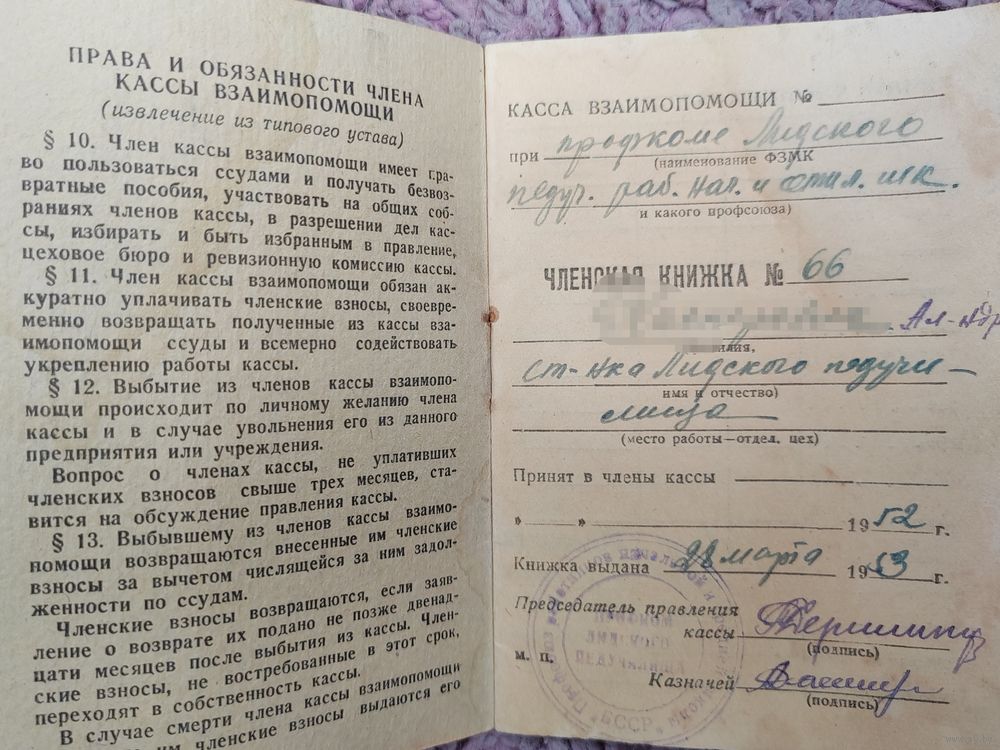 ПРАВА И ОБЯЗАННОСТИ ЧЛЕНА
КАССЫ ВЗАИМОПОМОЩИ
(извлечение из типового устава)
§ 10. Член кассы взаимопомощи имеет пра-
во пользоваться ссудами и получать безвоз-
вратные пособия, участвовать на общих соб-
раниях членов кассы, в разрешении дел кас-
сы, избирать и быть избранным в правление,
цеховое бюро и ревизионную комиссию кассы.
§ 11. Член кассы взаимопомощи обязан ак-
куратно уплачивать членские взносы, своевре-
менно возвращать полученные из кассы вза-
имопомощи ссуды и всемерно содействовать
укреплению работы кассы.
§ 12. Выбытие из членов кассы взаимопо-
мощи происходит по личному желанию члена
кассы и в случае увольнения его из данного
предприятия или учреждения.
Вопрос о членах кассы, не уплативших
членских взносов свыше трех месяцев, ста-
вится на обсуждение правления кассы.
§ 13. Выбывшему из членов кассы взаимо-
помощи возвращаются внесенные им членские
взносы за вычетом числящейся за ним задол-
женности по ссудам.
Членские взносы возвращаются, если заяв-
ление о возврате их подано не позже двенад-
цати месяцев после выбытия из кассы. Член-
ские взносы, не востребованные в этот срок,
переходят в собственность кассы.
В случае смерти члена кассы взаимопомощи
им членские взносы выдаются его
КАССА ВЗАИМОПОМОЩИ №
при профкоме Лидского
(наименование ФЗМК
педуч. раб. нач. и шк.
и какого профсоюза)
ЧЛЕНСКАЯ КНИЖКА № 66
Ал-ндр
ст-нка Лидского педучи-
имя и отчество)
лища
(место работы—отдел, цех)
Принят в члены кассы
" " 1952 г.
Книжка выдана 28 марта 1953 г.
Председатель правления
кассы
(подпись)
м. п.
Казначей
(подпись)
ПРОФКОМ
ЛИДСКОГО
ПЕДУЧИЛИЩА
БССР